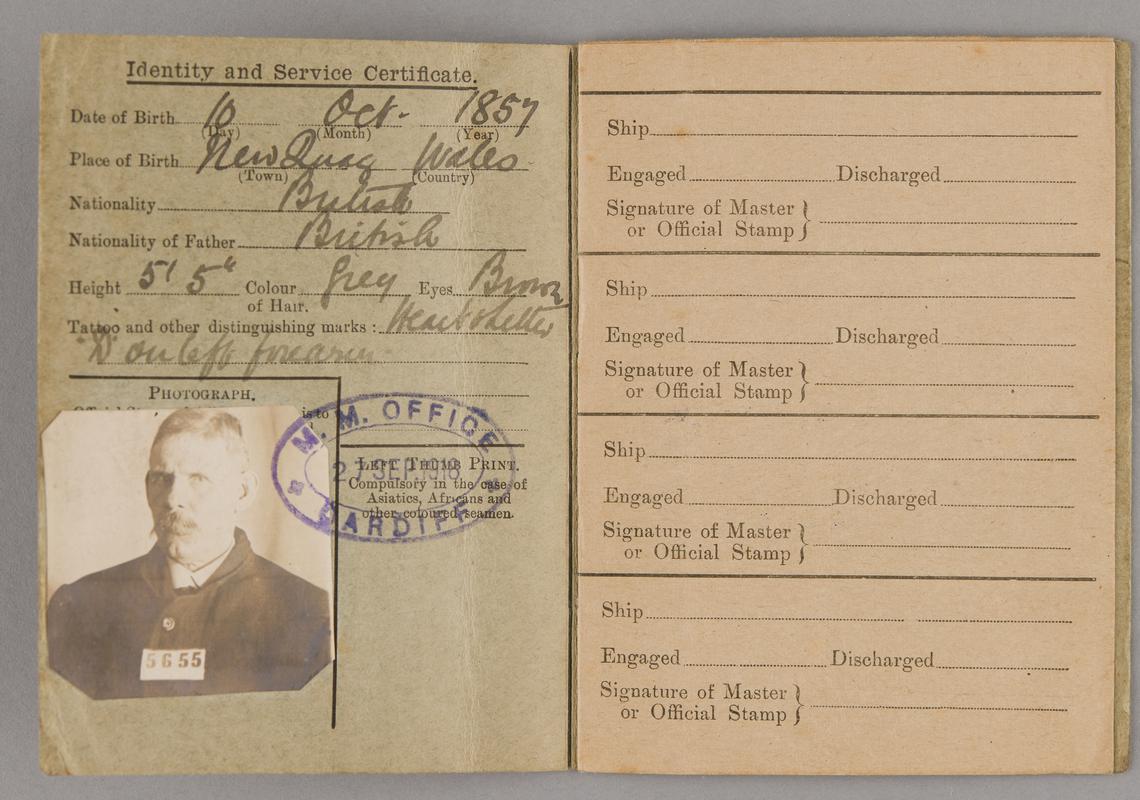 Identity and Service Certificate.
Date of Birth 10 Oct. 1857
(Day) (Month) (Year)
Place of Birth New Quay Wales
(Town) (Country)
Nationality British
Nationality of Father British
Height 5' 5" Colour Grey Eyes Brown
of Hair.
Tattoo and other distinguishing marks : Heart & letter
"D" on left forearm
PHOTOGRAPH.
is to
M. M. OFFICE
27 SEP 1918
CARDIFF
LEFT THUMB PRINT.
Compulsory in the case of
Asiatics, Africans and
other coloured seamen.
5655
Ship
Engaged Discharged
Signature of Master }
or Official Stamp
Ship
Engaged Discharged
Signature of Master }
or Official Stamp
Ship
Engaged Discharged
Signature of Master }
or Official Stamp
Ship
Engaged Discharged
Signature of Master }
or Official Stamp